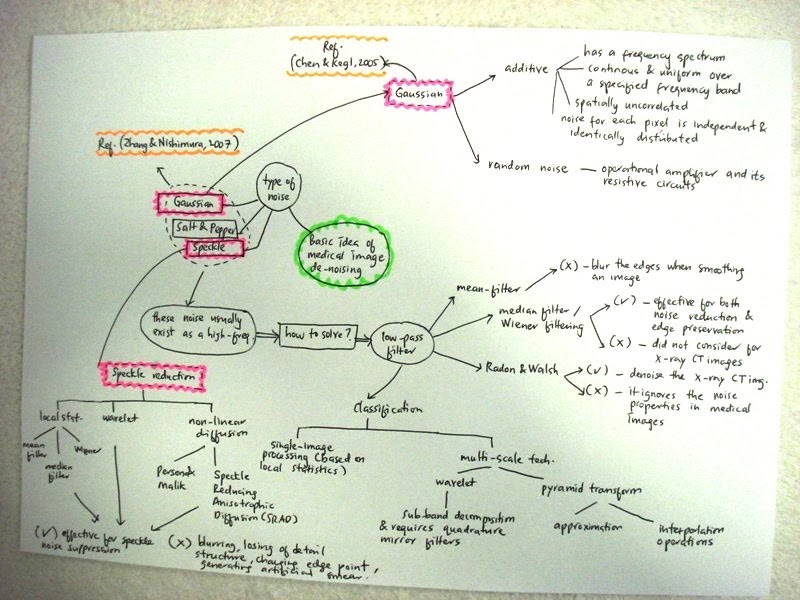 Ref.
(Chen & Kegl, 2005)
Gaussian
additive
has a frequency spectrum
continous & uniform over
a specified frequency band
spatially uncorrelated
noise for each pixel is independent &
identically distributed
random noise — operational amplifier and its
resistive circuits
Ref. (Zhang & Nishimura, 2007)
type of
noise
Gaussian
Salt & Pepper
Speckle
Basic idea of
medical image
de-noising
these noise usually
exist as a high-freq.
how to solve?
low-pass
filter
mean-filter
(x) - blur the edges when smoothing
an image
median filter /
Wiener filtering
(v) - effective for both
noise reduction &
edge preservation
(x) - did not consider for
X-ray CT images
Radon & Walsh
(v) - denoise the x-ray CT img.
(x) - it ignores the noise
properties in medical
images
Speckle reduction
local stat.
mean
filter
median
filter
wiener
wavelet
non-linear
diffusion
Perona &
Malik
Speckle
Reducing
Anisotrophic
Diffusion (SRAD)
(v) effective for speckle
noise suppression
(x) blurring, losing of detail
structure, changing edge point,
generating artificial smear.
Classification
single-image
processing (based on
local statistics)
multi-scale tech.
wavelet
sub-band decomposition
& requires quadrature
mirror filters
pyramid transform
approximation
interpolation
operations